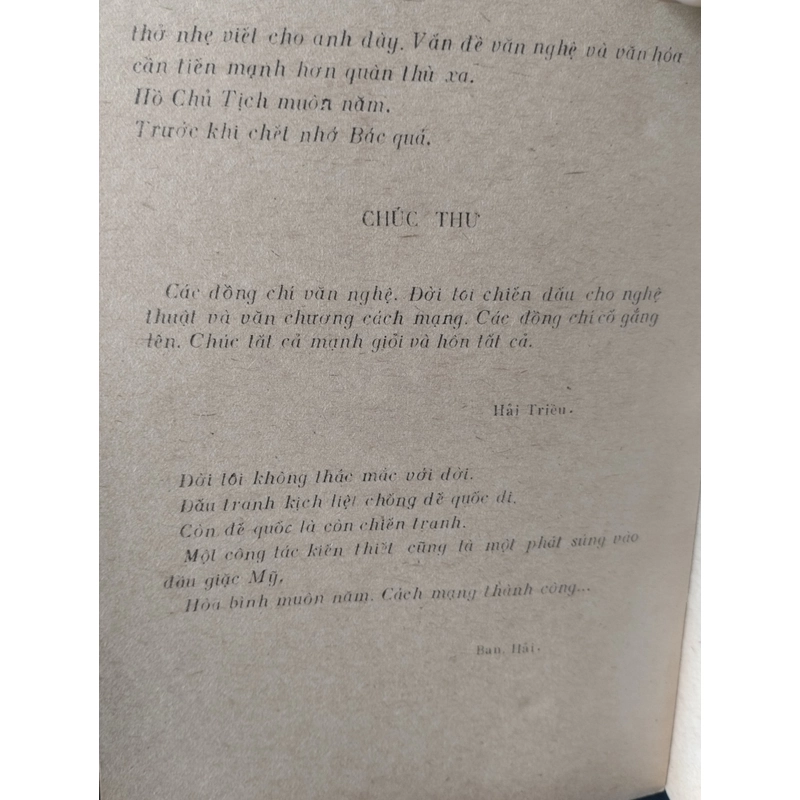 thở nhẹ viết cho anh đây. Vấn đề văn nghệ và văn hóa
cần tiến mạnh hơn quân thù xa.
Hồ Chủ Tịch muôn năm.
Trước khi chết nhớ Bác quá.
CHÚC THƯ
Các đồng chí văn nghệ. Đời tôi chiến đấu cho nghệ
thuật và văn chương cách mạng. Các đồng chí cố gắng
lên. Chúc tất cả mạnh giỏi và hôn tất cả.
Hải Triều.
Đời tôi không thắc mắc với đời.
Đấu tranh kịch liệt chống đế quốc đi.
Còn đế quốc là còn chiến tranh.
Một công tác kiến thiết cũng là một phát súng vào
đầu giặc Mỹ.
Hòa bình muôn năm. Cách mạng thành công...
Ban Hải.